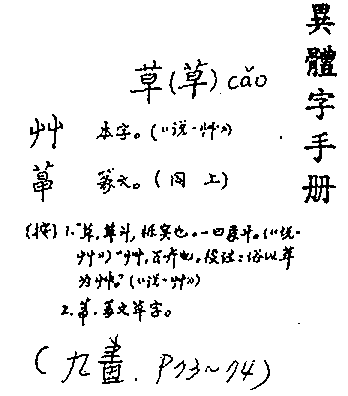 異體字手册
草(草) cǎo
艸 本字。(《说·艸》)
篆文。(同上)
(按) 1.“草,草斗,栎实也。一曰象斗。(《说·
艸》)“艸,百卉也。段注:俗以草
为艸。”(《说·艸》)
2. 篆文草字。
(九畫. P73~74)